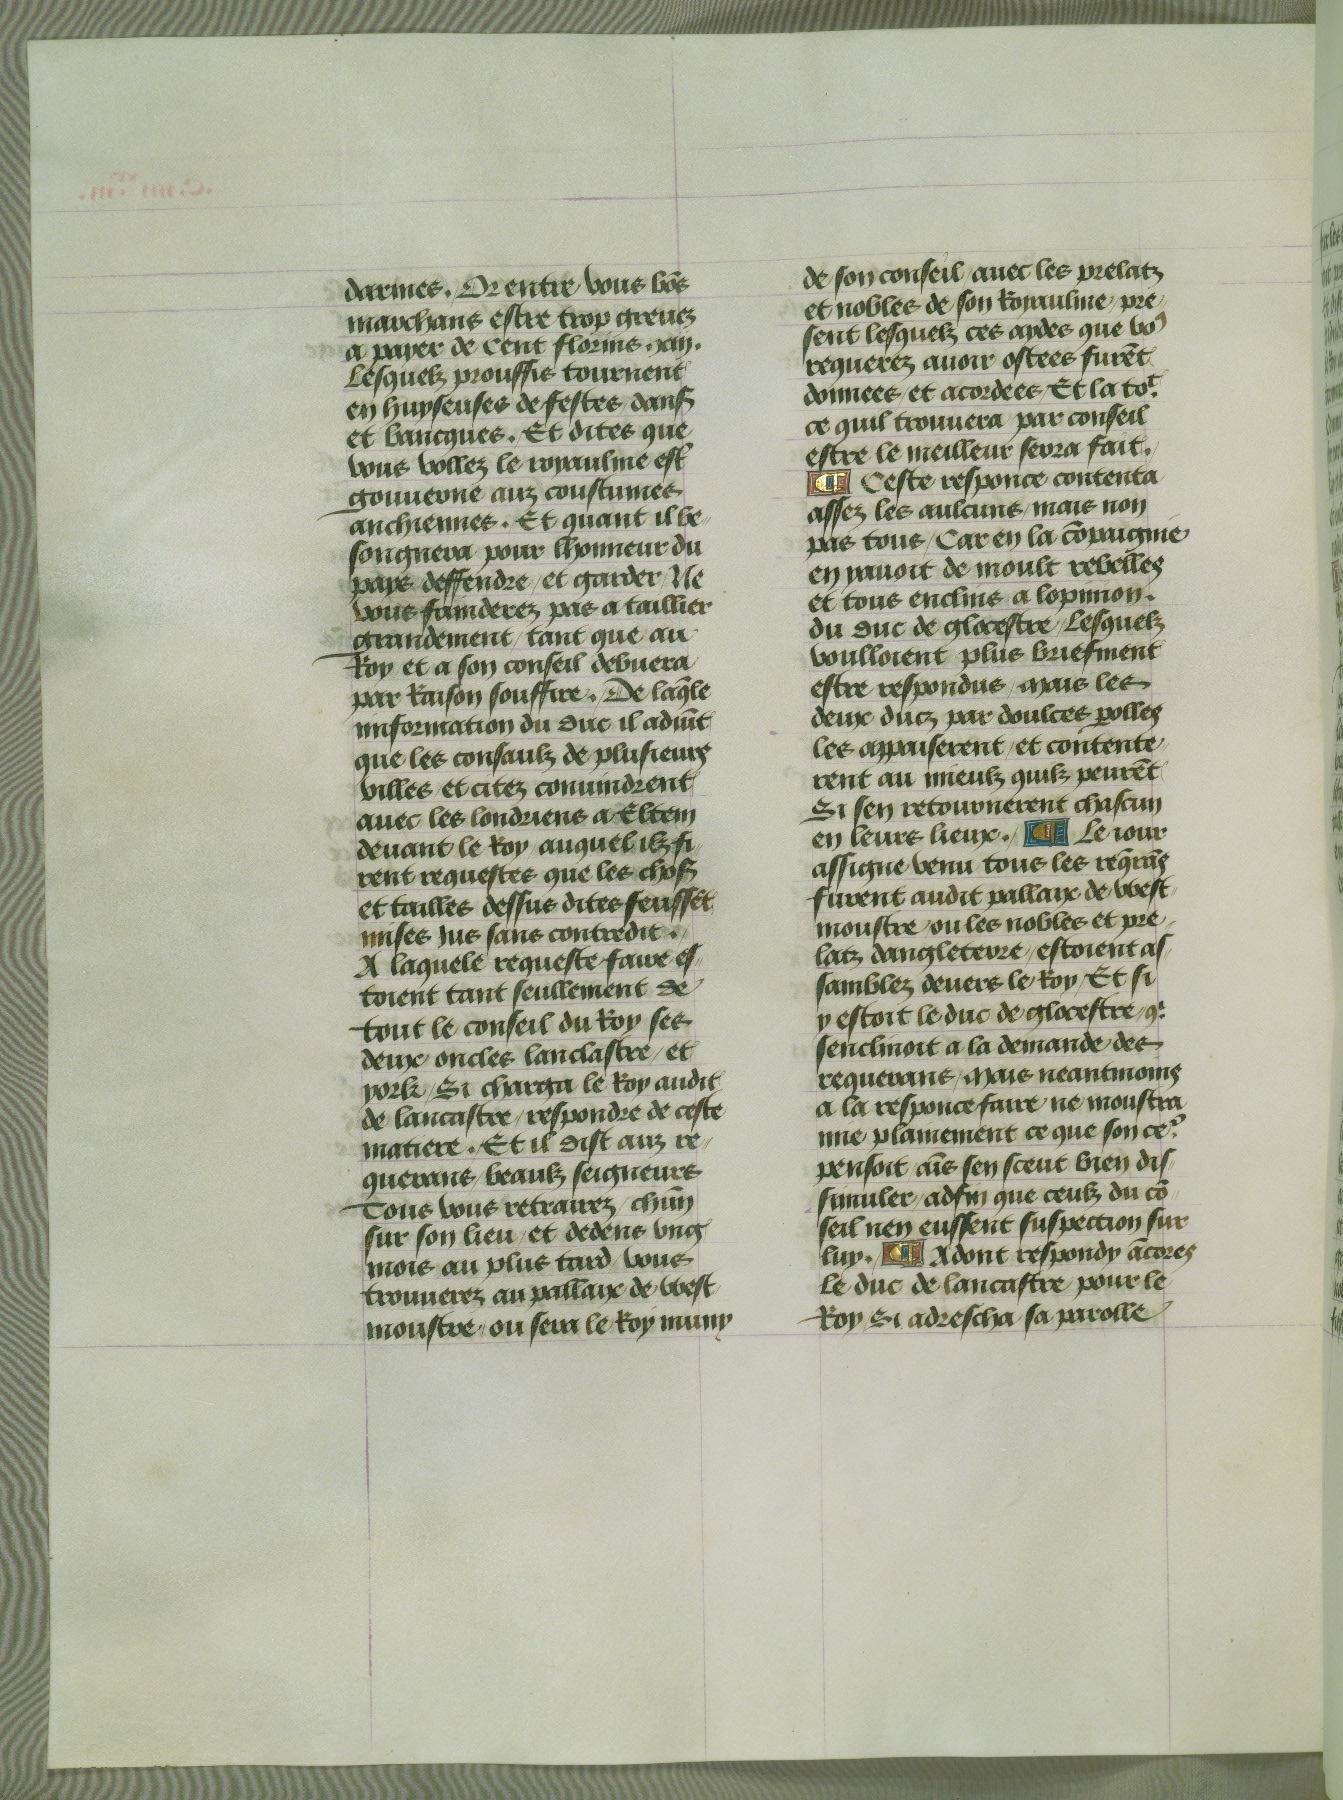 darmes. Or entre vous bōs
marchans estre trop greuez
a payer de Cent florins .xiij.
Lesquelz prouffis tournent
en huyseuses de festes / danss
et bancques. Et dites que
vous vollez le royaulme est
gouuerne aux coustumes
anchiennes. Et quant il be-
songnera pour lhonneur du
pays deffendre / et garder / Ne
vous fainderez pas a taillier
grandement / tant que au
Roy et a son conseil debuera
par Raison souffire. De laq̄le
information du duc il aduīt
que les consaulz de plusieurs
villes et citez conuindrent
auec les londriens a Eltem
deuant le Roy auquel ilz fi-
rent requestes que les choss
et tailles dessus dites feussēt
mises Jus sans contredit.
A laquele requeste faire es-
toient tant seullement de
tout le conseil du Roy ses
deux oncles lanclastre / et
york / Si charga le Roy audit
de lancastre / respondre de ceste
matiere. Et il dist aux re-
querans / beaulz seigneurs
Tous vous retrairez / chūn
sur son lieu / et dedens vng
mois au plus tard vous
trouuerez au pallaix de West
moustre / ou sera le Roy muny
de son conseil / auec les prelatz
et nobles de son Royaulme / pre-
sent lesquelz ces aydes que vo9
requerez auoir ostees furēt
donnees et acordees / Et la to9t
ce quil trouuera par conseil
estre le meilleur sera fait.
Ceste responce contenta
assez les aulcuns / mais non
pas tous / Car en la cōpaignie
en yauoit de moult rebelles
et tous enclins a lopinion.
du duc de glocestre / Lesquelz
voulloient plus briefment
estre respondus / Mais les
deux ducz par doulces ꝑolles
les appaiserent / et contente-
rent au mieulz quilz peurēt
Si sen retournerent chascun
en leurs lieux. Le iour
assigne venu tous les req̄rās
furent audit pallaix de West
moustre / ou les nobles et pre-
latz dangleterre / estoient as-
samblez deuers le Roy / Et si
y estoit le duc de glocestre / qi
senclinoit a la demande des
requerans / Mais neantmoins
a la responce faire ne moustra
mie plainement ce que son ce9r
pensoit ais sen sceut bien dis-
simuler / adfin que ceulz du cō-
seil nen eussent suspection sur
luy. Adont respondy ācores
Le duc de lancastre pour le
Roy / Si adrescha sa parolle